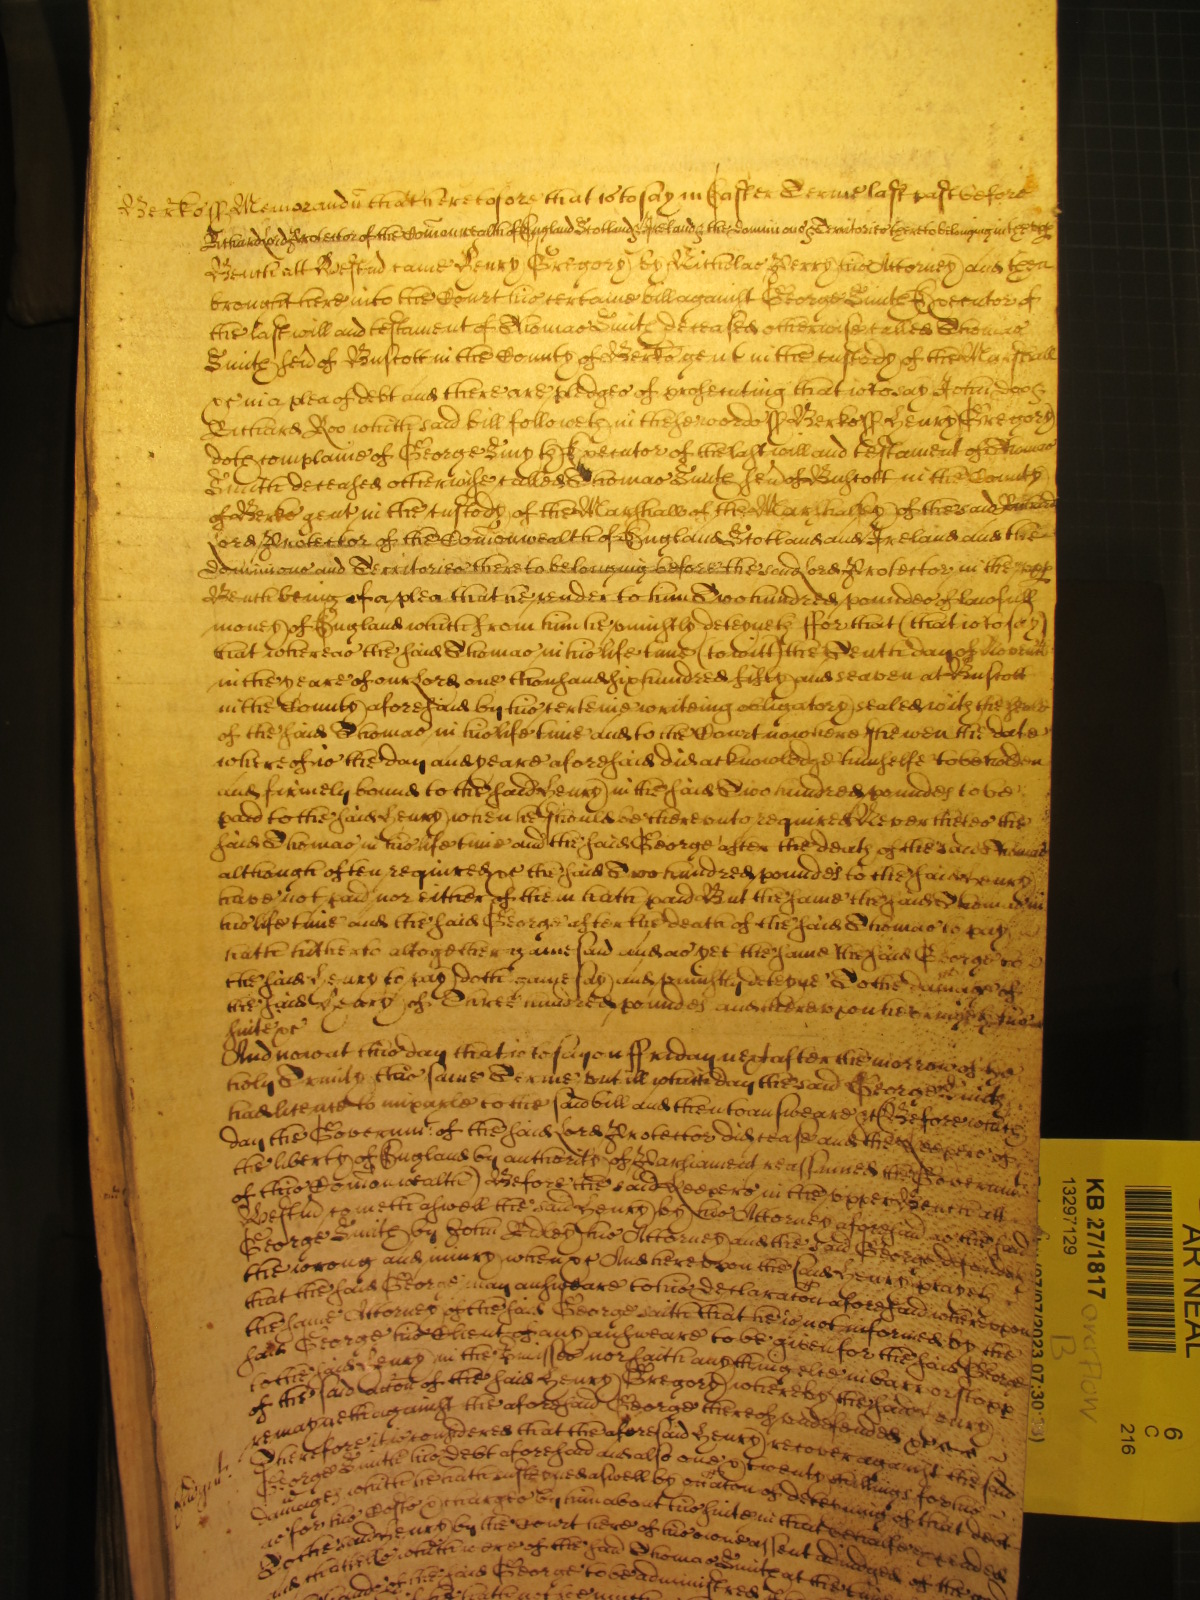 Berks ss Memorandū that heretofore that is to say in Easter Terme last past before
Richard Lord Protector of the Comonwealth of England Scotland & Ireland & the dominions & Territories thereto belonging in the upp
Bench att Westmr came Henry Gregory by Nicholas Perry his Attorney and then
brought here into the Court his certaine bill against George Smith Executor of
the last will and testament of Thomas Smith deceased otherwise called Thomas
Smith senr of Buscott in the County of Berks gent in the custody of the Marshall
&c in a plea of debt and there are pledges of prosecuting that is to say John Doe &
Richard Roo which said bill followeth in these words ss Berks ss Henry Gregory
doth complaine of George Smyth Executor of the last will and testament of Thomas
Smith deceased otherwise called Thomas Smith senr of Buscott in the County
of Berks gent in the custody of the Marshall of the Marshalsey of the said Richard
Lord Protector of the Comonwealth of England Scotland and Ireland and the
dominions and Territories thereto belonging before the said Lord Protector in the upp
Bench being of a plea that he render to him Two hundred pounds of lawfull
money of England which from him he uniustly deteyneth ffor that (that is to say)
that whereas the said Thomas in his life time (to witt) the Tenth day of Novemb
in the yeare of our Lord one thousand six hundred fifty and seaven at Buscott
in the County aforesaid by his certeine writeing obligatory sealed with the seale
of the said Thomas in his life time and to the Court now here shewen the date
whereof is the day and yeare aforesaid did acknowledge himselfe to be holden
and firmely bound to the said Henry in the said Two hundred pounds to be
paid to the said Henry when he should be thereunto required Neverthelesse the
said Thomas in his life time and the said George after the death of the said Thomas
although often required &c the said Two hundred pounds to the said Henry
have not paid nor either of them hath paid But the same the said Thomas in
his life time and the said George after the death of the said Thomas to pay
hath hitherto altogether gainesaid and as yet the same the said George to
the said Henry to pay doth gainesay and uniustly deteyne To the damage of
the said Henry of Three hundred pounds and thereupon he bringeth his
suite &c
And now at this day that is to say on ffriday next after the morrow of the
holy Trinity this same Terme untill which day the said George Smith
had licence to imparle to the said bill and then to answeare &c Before which
day the Governmt of the said Lord Protector did cease and the Keepers of
the liberty of England by authority of Parliament reassumed the Governmt
of this Comonwealth) Before the said Keepers in the upper Bench att
Westmr cometh aswell the said Henry by his Attorney aforesaid as the said
George Smith by John his Attorney and the said George defendes
the wrong and iniury when &c And hereupon the said Henry prayeth
that the said George may answeare to his declaration aforesaid whereupon
the same Attorney of the said George saith that he is not informed by the
said George his Client of any answeare to be given for the said George
to the said Henry in the premisses nor saith any thing else in barr or stopp
of the said action of the said Henry Gregory whereby the said Henry
remayneth against the aforesaid George thereof undefended &c
Judgmt.
Therefore it is considered that the aforesaid Henry recover against the said
George Smith his debt aforesaid and also one & twenty shillings for his
damages which he hath susteyned aswell by occation of deteyning of that debt
as for his Costs & charges by him about his suite in that behalfe expended
To the said Henry by the Court here of his owne assent adiudged of the goodes
and chattells which were of the said Thomas Smith at the time
hands of the said George to be administred
KB 27/1817
13297129
overflow
B
6
C
216